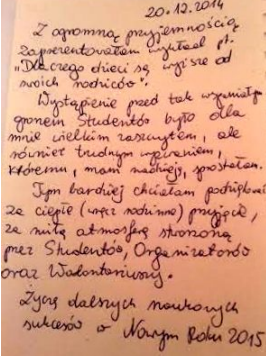 20.12.2014
Z ogromną przyjemnością
zaprezentowałam wykład pt.
"Dlaczego dzieci są wyższe od
swoich rodziców".
Wystąpienie przed tak wspaniałym
gronem Studentów było dla
mnie wielkim zaszczytem, ale
również trudnym wyzwaniem,
któremu, mam nadzieję, sprostałam.
Tym bardziej chciałam podziękować
za ciepłe (wręcz rodzinne) przyjęcie,
za miłą atmosferę stworzoną
przez Studentów, Organizatorów
oraz Wolontariuszy.
Życzę dalszych naukowych
sukcesów w Nowym Roku 2015